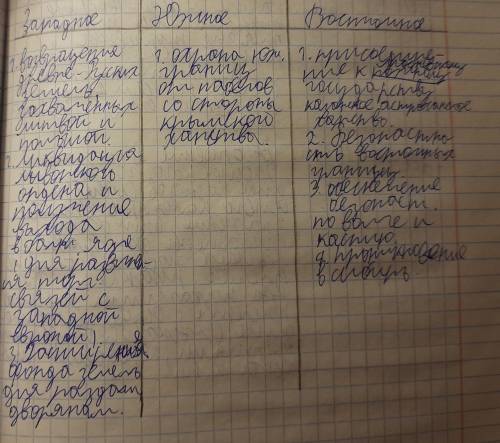 Западное
Южное
Восточное
1. возвращение
древне-русских
земель,
захваченных
литвой и
польшой
2. ликвидация
ливонского
ордена и
получение
выхода
в балт.
( для разви-
я торг.
связей с
Западной
европой )
3. Расширения
фонда земель
для раздачи
дворянам.
1. охрана юж.
границ
от набегов
со стороны
крымского
ханства.
1. присоедине-
ние к
государству
казанское, астраханское
ханство.
2. Безопасно
сть восточных
границ
3. обеспечение
безопаст.
по волге и
каспию
4. продвижение
в сибирь